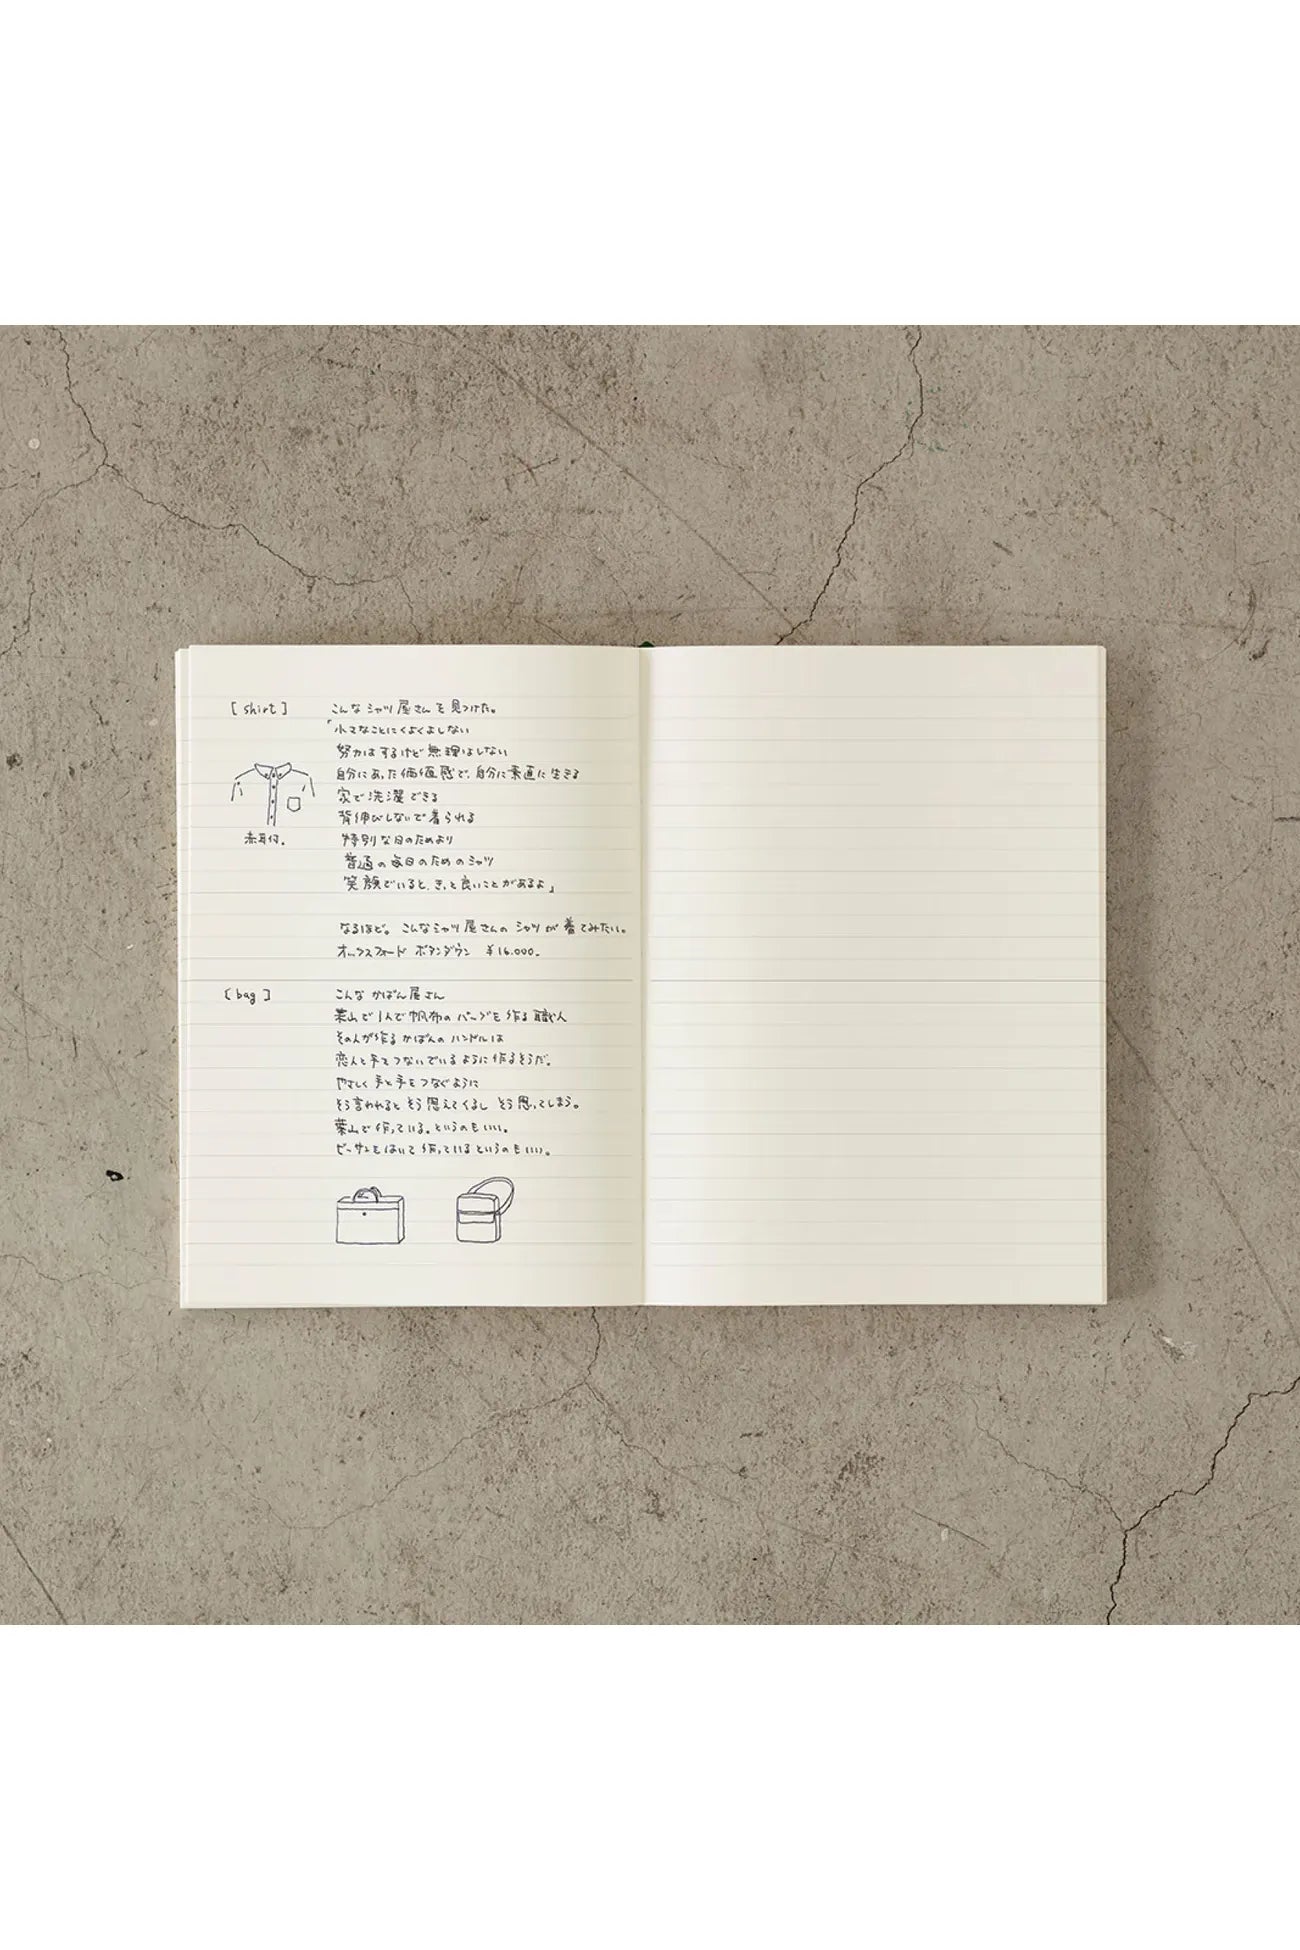 [ shirt ]
こんなシャツ屋さんを見つけた。
「小さなことにくよくよしない
努力はするけど無理はしない
自分にあった価値感で、自分に素直に生きる
家で洗濯できる
背伸びしないで着られる
特別な日のためより
普通の毎日のためのシャツ
笑顔でいると、きっと良いことがあるよ」
赤耳付。
なるほど。こんなシャツ屋さんのシャツが着てみたい。
オックスフォード ボタンダウン ¥16.000.
[ bag ]
こんなかばん屋さん
葉山で1人で帆布のバッグを作る職人
その人が作るかばんのハンドルは
恋人と手をつないでいるように作るそうだ。
やさしく手と手をつなぐように
そう言われるとそう思えてくるしそう思ってしまう。
葉山で作っている。というのもいい。
ビーサンをはいて作っているというのもいい。